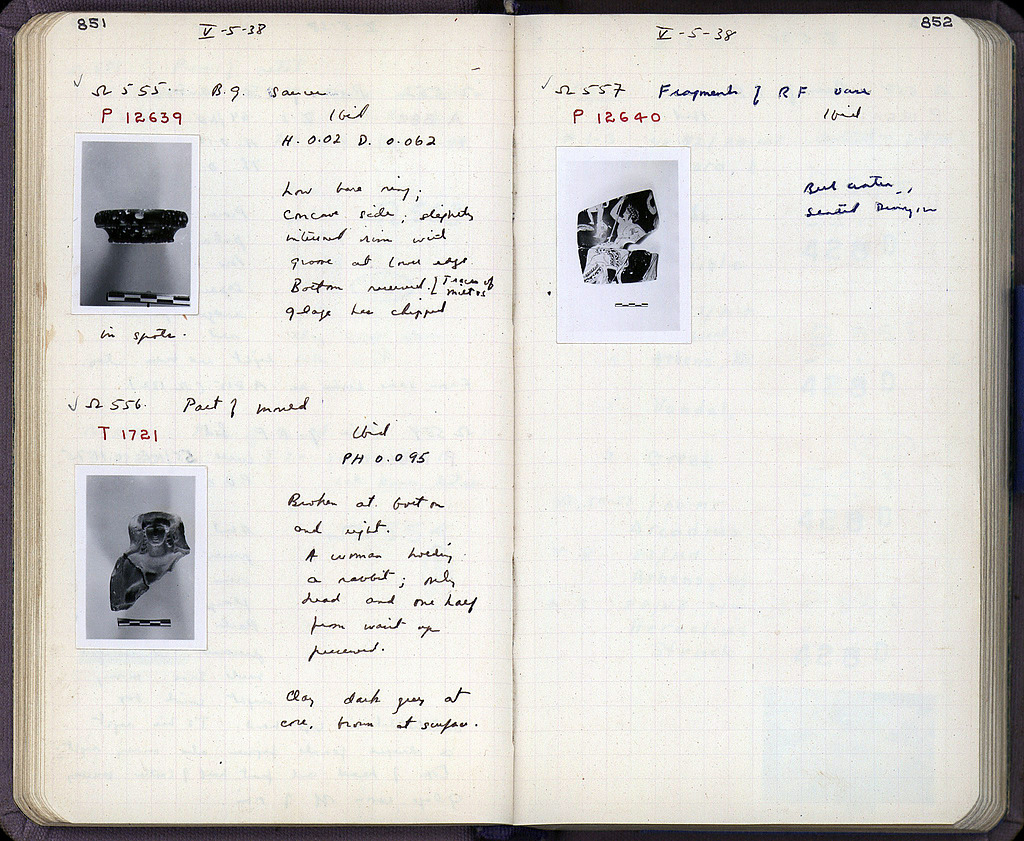 851
V-5-38
✓ Ω 555. B.g. saucer
P 12639 Ibid
H. 0.02 D. 0.062
Low base ring;
concave side; slightly
inturned rim with
groove at lower edge
Bottom reserved. [Traces of
miltos
glaze has chipped
in spots.
✓ Ω 556. Part of mould
T 1721 Ibid
PH 0.095
Broken at bottom
and right.
A woman holding
a rabbit; only
head and one half
from waist up
preserved.
Clay dark grey at
core, brown at surface.
852
V-5-38
✓ Ω 557 Fragment of RF vase
P 12640 Ibid
Bell crater,
seated Dionysos